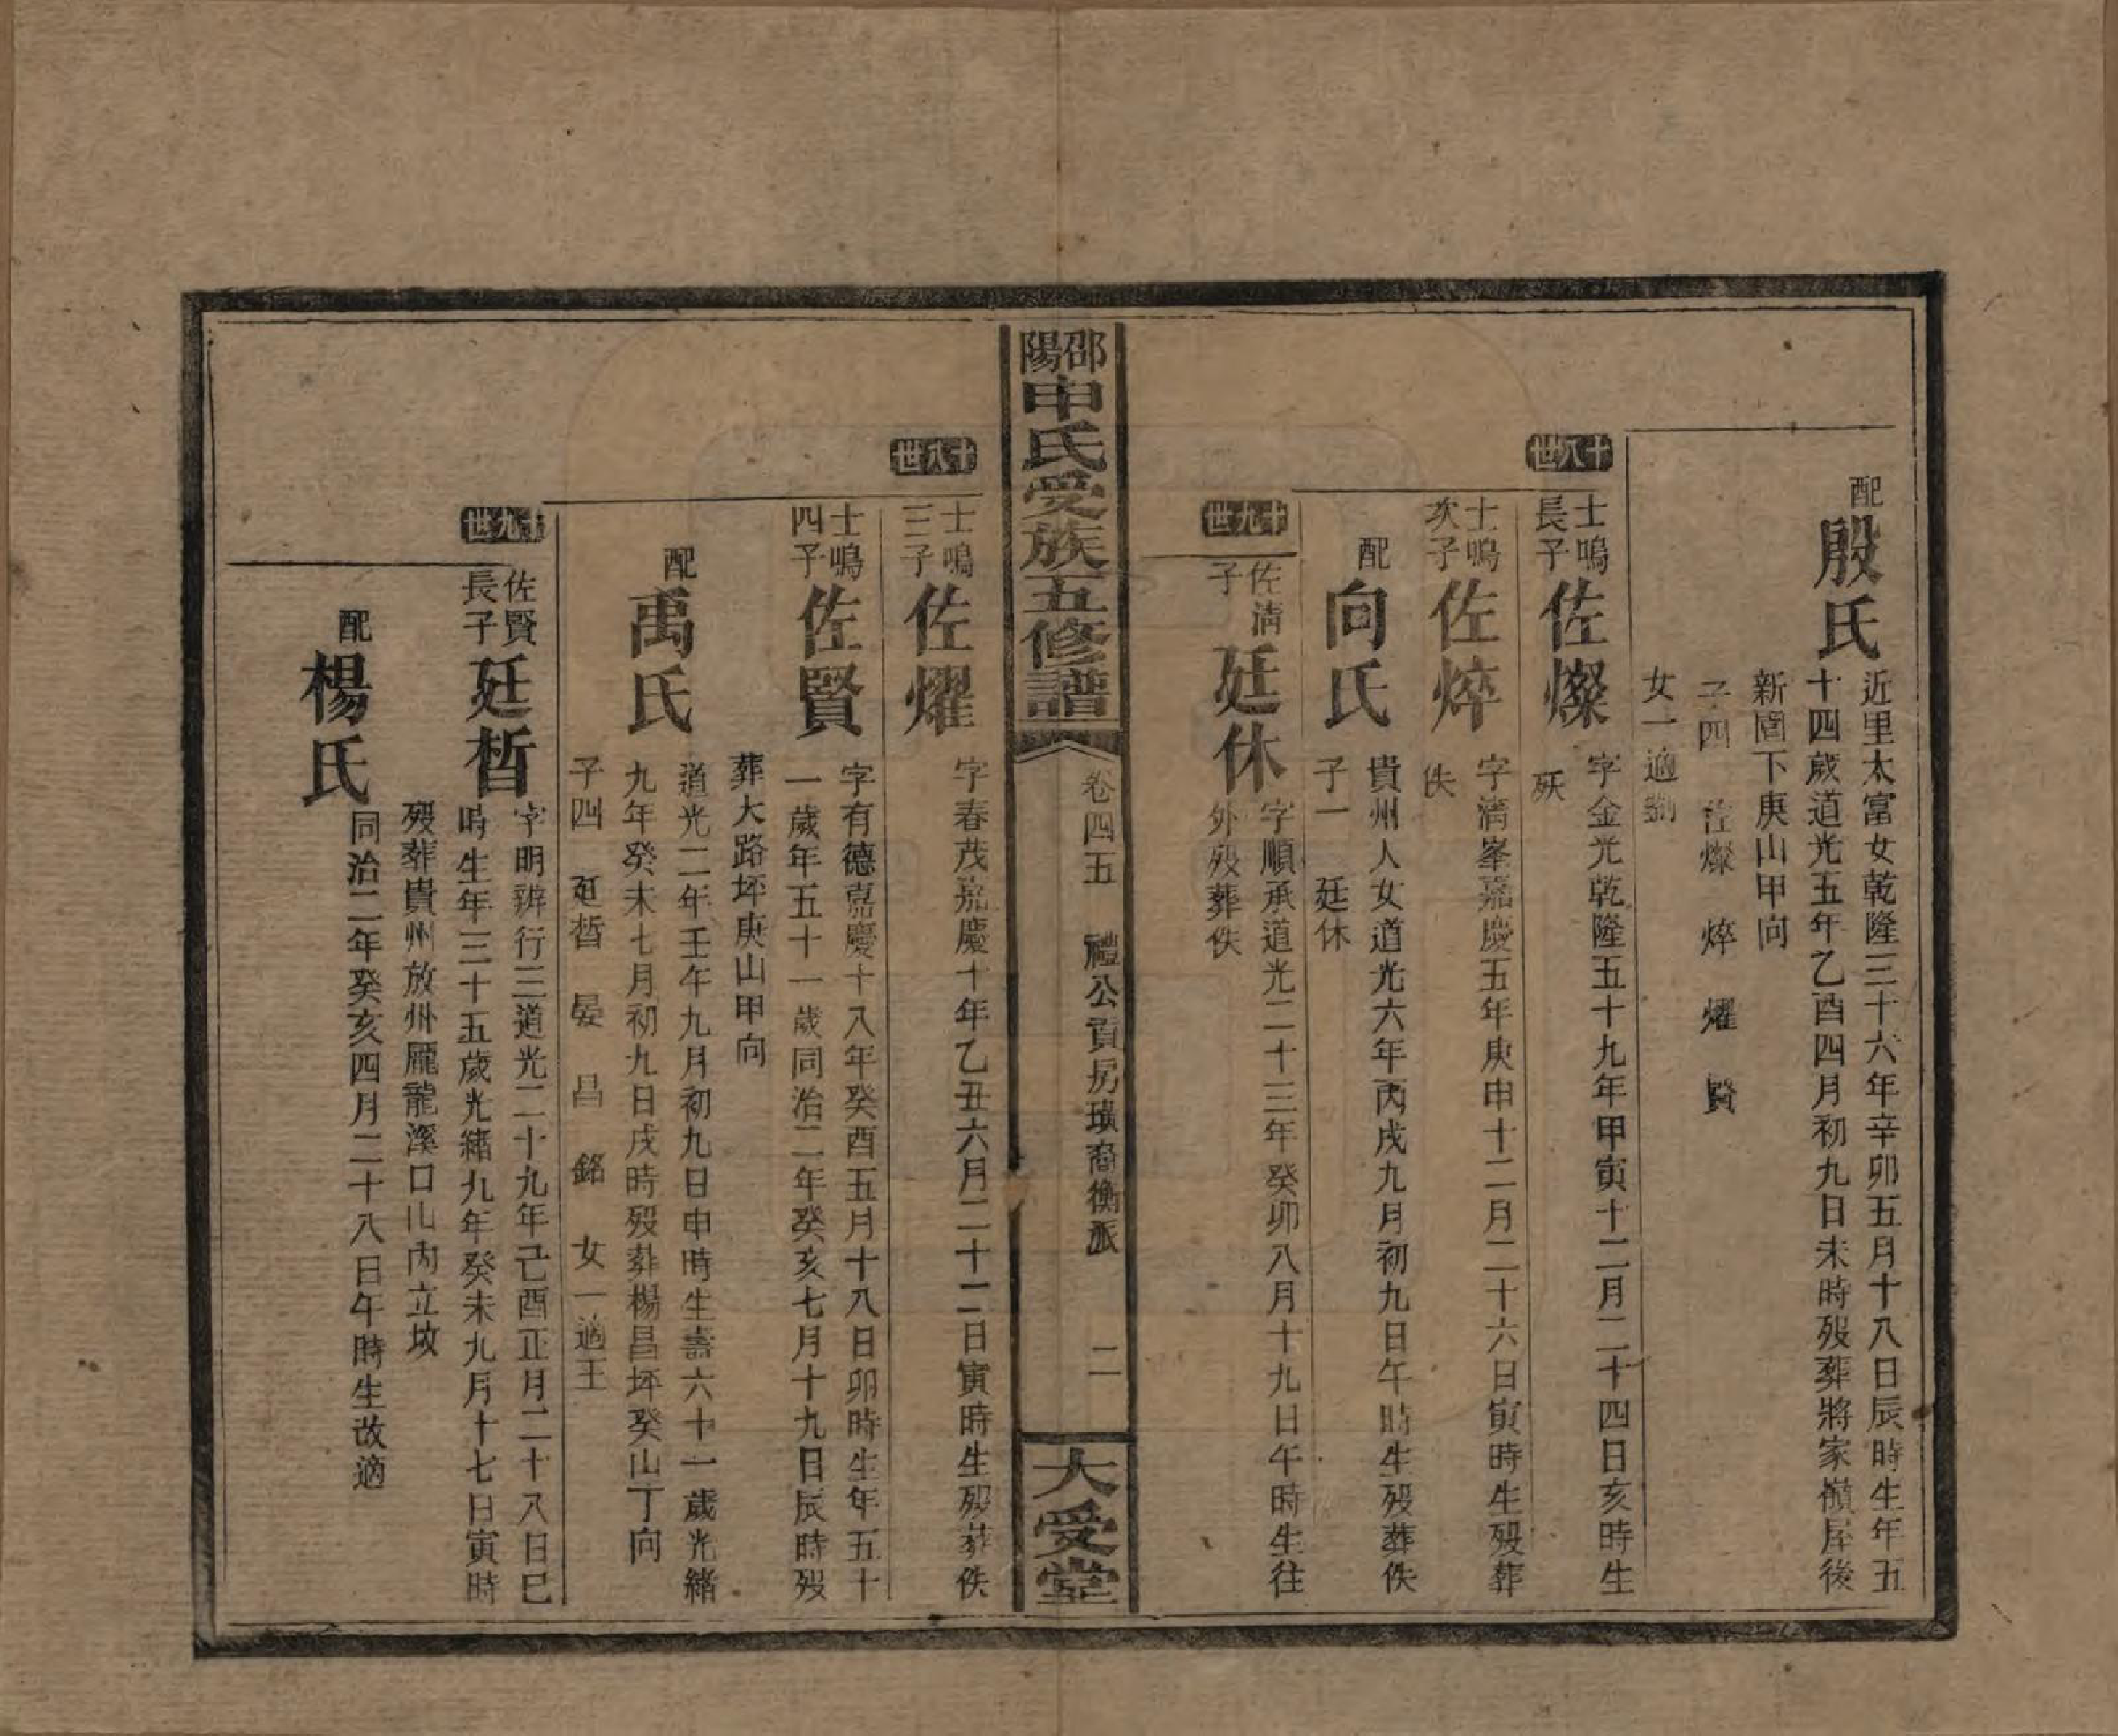 配殷氏
近里太富女乾隆三十六年辛卯五月十八日辰時生年五
十四歲道光五年乙酉四月初九日未時歿葬將家嶺屋後
新園下庚山甲向
子四 佐燦 焠 燿 賢
女一適劉
十八世
士鳴長子佐燦
字金光乾隆五十九年甲寅十二月二十四日亥時生
殀
士鳴次子佐焠
字清峯嘉慶五年庚申十二月二十六日寅時生歿葬
佚
配向氏
貴州人女道光六年丙戌九月初九日午時生歿葬佚
子一 廷休
十九世
佐清子廷休
字順承道光二十三年癸卯八月十九日午時生往
外歿葬佚
邵陽申氏受族五修譜
卷四五 禮公貢房璜裔衡派 二
大受堂
十八世
士鳴三子佐燿
字春茂嘉慶十年乙丑六月二十二日寅時生歿葬佚
士鳴四子佐賢
字有德嘉慶十八年癸酉五月十八日卯時生年五十
一歲年五十一歲同治二年癸亥七月十九日辰時歿
葬大路坪庚山甲向
配禹氏
道光二年壬午九月初九日申時生壽六十一歲光緒
九年癸未七月初九日戌時歿葬楊昌坪癸山丁向
子四 廷晳 晏 昌 銘 女一適王
十九世
佐賢長子廷晳
字明辨行三道光二十九年己酉正月二十八日巳
時生年三十五歲光緒九年癸未九月十七日寅時
歿葬貴州放州龎龍溪口山內立坟
配楊氏
同治二年癸亥四月二十八日午時生改適